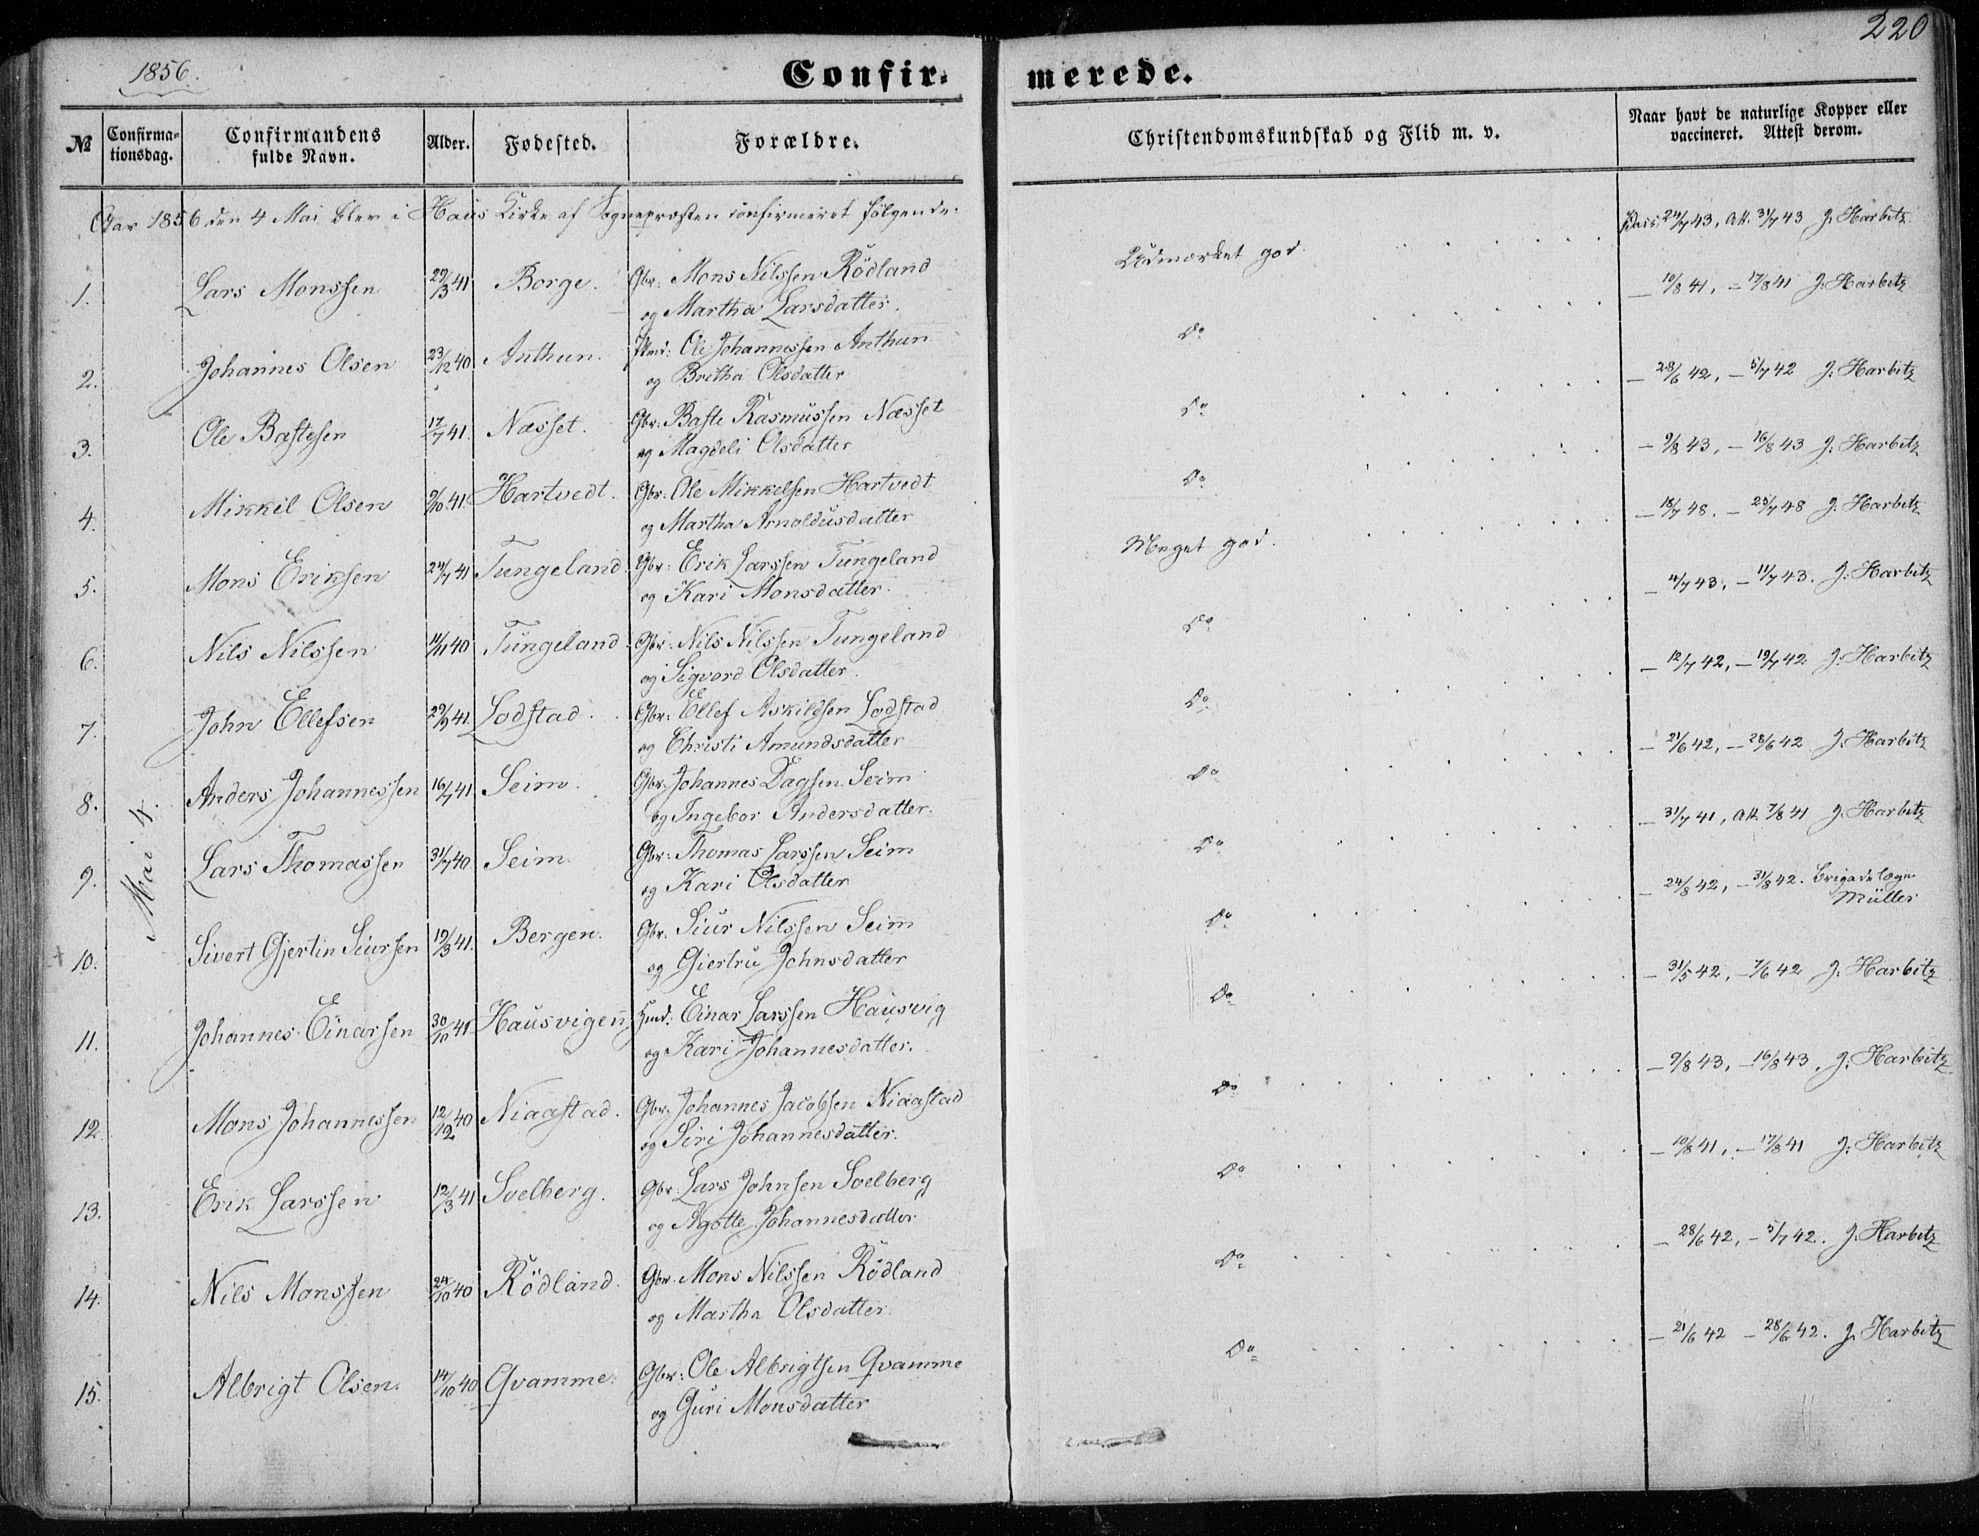 220
1856.
Confir= merede.
№
Confirma-
tionsdag.
Confirmandens
fulde Navn.
Alder.
Fødested.
Forældre.
Christendomskundskab og Flid m. v.
Naar havt de naturlige Kopper eller
vaccineret. Attest derom.
Aar 1856 den 4 Mai blev i Haus Kirke af Sognepræsten confirmeret følgende.
Mai 4.
1. Lars Monssen 29/3 41 Borge. Gbr: Mons Nilssen Rödland Udmærket god. 24/7 43, Att. 31/7 43 J. Harbitz
og Martha Larsdatter.
2. Johannes Olsen 23/12 40 Anthun. Ole Johannessen Anthun Do – 10/8 41, – 17/8 41 J. Harbitz
og Britha Olsdatter
3. Ole Bastesen 17/7 41. Næsset. Gbr: Baste Rasmussen Næsset Do – 28/6 42, – 5/7 42 J. Harbitz
og Magdeli Olsdatter
4. Mikkil Olsen 9/10 41. Hartvedt. Gbr: Ole Mikkelsen Hartvedt Do – 9/8 43, – 16/8 43 J. Harbitz
og Martha Arnoldusdatter
5. Mons Eriksen 24/7 41 Tungeland. Gbr: Erik Larssen Tungeland Meget god. – 18/7 48. – 25/7 48 J. Harbitz
og Kari Monsdatter.
6. Nils Nilssen 11/11 40 Tungeland. Gbr: Nils Nilssen Tungeland Do – 4/7 43, – 11/7 43. J. Harbitz
og Sigvord Olsdatter.
7. John Ellefsen 29/9 41. Lodstad. Gbr: Ellef Askildsen Lodstad Do – 12/7 42, – 19/7 42 J. Harbitz
og Christi Amundsdatter
8. Anders Johannessen 16/7 41 Seim. Gbr. Johannes Dagsen Seim Do – 21/6 42, – 28/6 42 J. Harbitz
og Ingebor Andersdatter.
9. Lars Thomassen 31/7 40 Seim. Gbr: Thomas Larssen Seim Do – 31/7 41, Att. 7/8 41 J. Harbitz
og Kari Olsdatter
10. Sivert Gjertin Siursen 19/3 41. Bergen. Gbr. Siur Nilssen Seim Do – 24/8 42, – 31/8 42. Brigadelæge
Müller
og Giertru Johnsdatter
11. Johannes Einarsen 30/10 41 Hausvigen Hmd. Einar Larssen Hausvig Do – 31/5 42, – 7/6 42 J. Harbitz
og Kari Johannesdatter.
12. Mons Johannessen 12/12 40 Niaastad. Gbr. Johannes Jacobsen Niaastad Do – 9/8 43, – 16/8 43, J. Harbitz
og Siri Johannesdatter.
13. Erik Larssen 12/3 41 Soelberg. Gbr: Lars Johnsen Soelberg Do – 10/8 41, – 17/8 41 J. Harbitz
og Agotte Johannesdatter
14. Nils Monssen 24/10 40 Rödland. Gbr. Mons Nilssen Rödland Do – 28/6 42, – 5/7 42. J. Harbitz
og Martha Olsdatter.
15. Albrigt Olsen. 14/10 40 Qvamme. Gbr: Ole Albrigtsen Qvamme Do – 21/6 42 – 28/6 42. J. Harbitz
og Guri Monsdatter